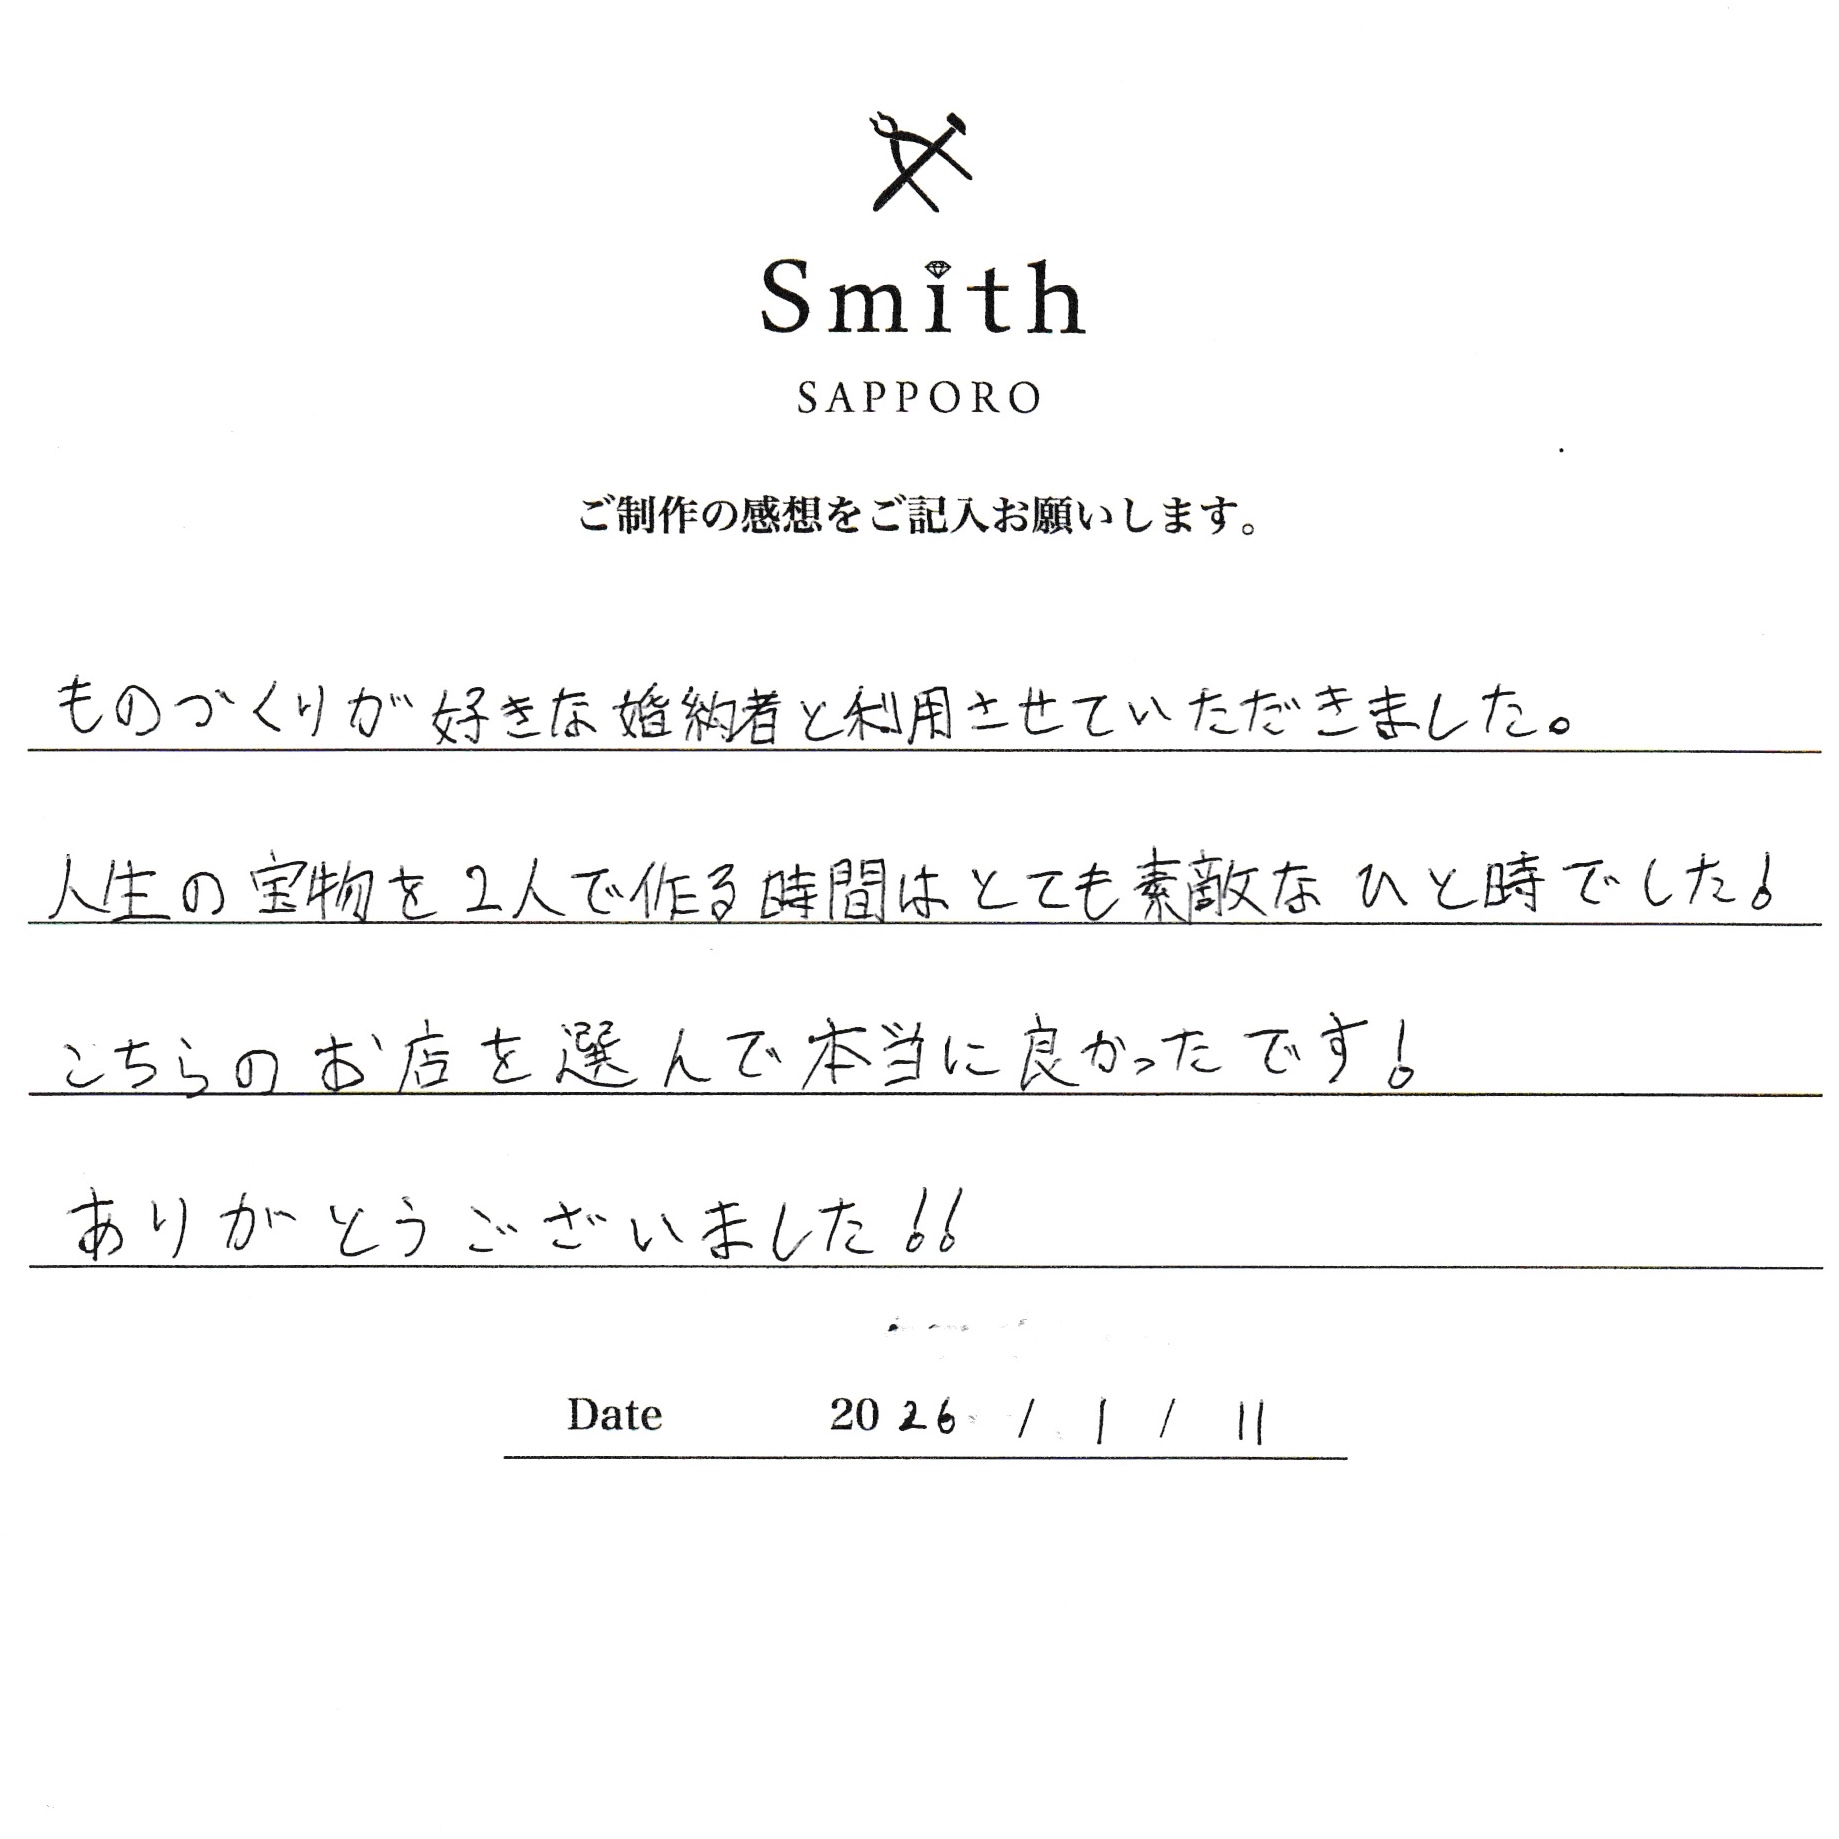 Smith
SAPPORO
ご制作の感想をご記入お願いします。
ものづくりが好きな婚約者と利用させていただきました。
人生の宝物を2人で作る時間はとても素敵なひと時でした!
こちらのお店を選んで本当に良かったです!
ありがとうございました!!
Date 2026 / 1 / 11